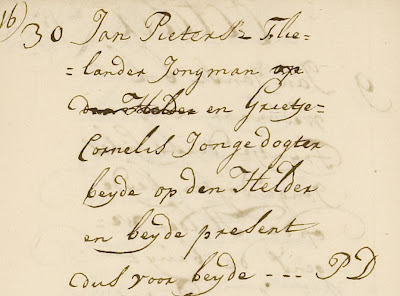 16) 30 Jan Pietersz Flie-
=lander Jongman op
den Helder en Grietje
Cornelis Jonge dogter
beyde op den Helder
en beyde present
dus voor beyde --- PD